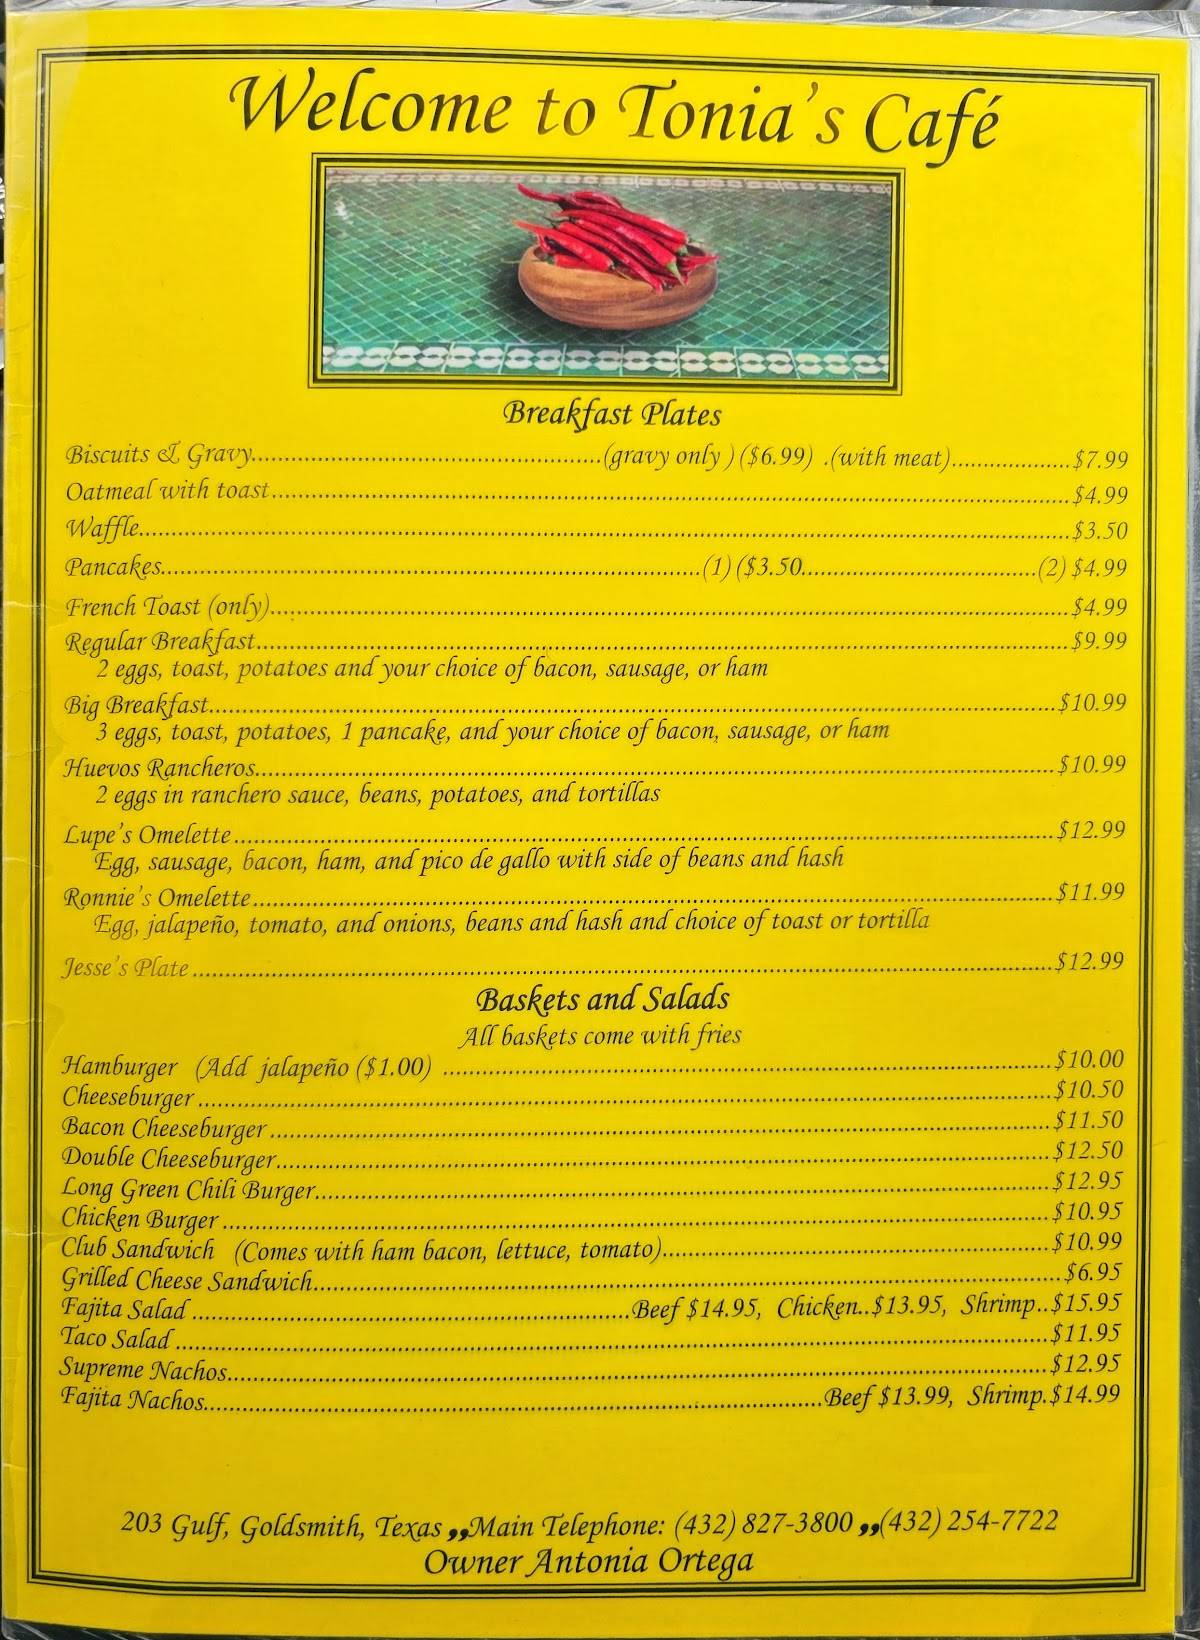 Welcome to Tonia's Café
Breakfast Plates
Biscuits & Gravy..................................................(gravy only ) ($6.99) .(with meat)..................$7.99
Oatmeal with toast..................................................$4.99
Waffle..................................................$3.50
Pancakes..................................................(1) ($3.50..................................................(2) $4.99
French Toast (only)..................................................$4.99
Regular Breakfast..................................................$9.99
2 eggs, toast, potatoes and your choice of bacon, sausage, or ham
Big Breakfast..................................................$10.99
3 eggs, toast, potatoes, 1 pancake, and your choice of bacon, sausage, or ham
Huevos Rancheros..................................................$10.99
2 eggs in ranchero sauce, beans, potatoes, and tortillas
Lupe's Omelette..................................................$12.99
Egg, sausage, bacon, ham, and pico de gallo with side of beans and hash
Ronnie's Omelette..................................................$11.99
Egg, jalapeño, tomato, and onions, beans and hash and choice of toast or tortilla
Jesse's Plate..................................................$12.99
Baskets and Salads
All baskets come with fries
Hamburger (Add jalapeño ($1.00) ..................................................$10.00
Cheeseburger..................................................$10.50
Bacon Cheeseburger..................................................$11.50
Double Cheeseburger..................................................$12.50
Long Green Chili Burger..................................................$12.95
Chicken Burger..................................................$10.95
Club Sandwich (Comes with ham bacon, lettuce, tomato)..................................................$10.99
Grilled Cheese Sandwich..................................................$6.95
Fajita Salad..................................................Beef $14.95, Chicken..$13.95, Shrimp..$15.95
Taco Salad..................................................$11.95
Supreme Nachos..................................................$12.95
Fajita Nachos..................................................Beef $13.99, Shrimp.$14.99
203 Gulf, Goldsmith, Texas ,,Main Telephone: (432) 827-3800 ,,(432) 254-7722
Owner Antonia Ortega